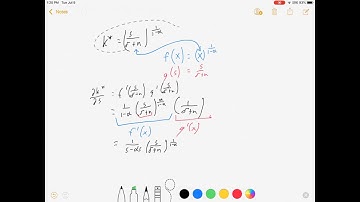 7:35 PM Tue Jul 6
Notes
k* = (s/(δ+n))^(1/(1-α))
f(x) = (x)^(1/(1-α))
g(s) = s/(δ+n)
∂k*/∂s = f'(s/(δ+n)) g'(s/(δ+n))
= 1/(1-α) (s/(δ+n))^(α/(1-α)) (s/(δ+n))
f'(x) g'(x)
= 1/(s-αs) (s/(δ+n))^(1/(1-α))